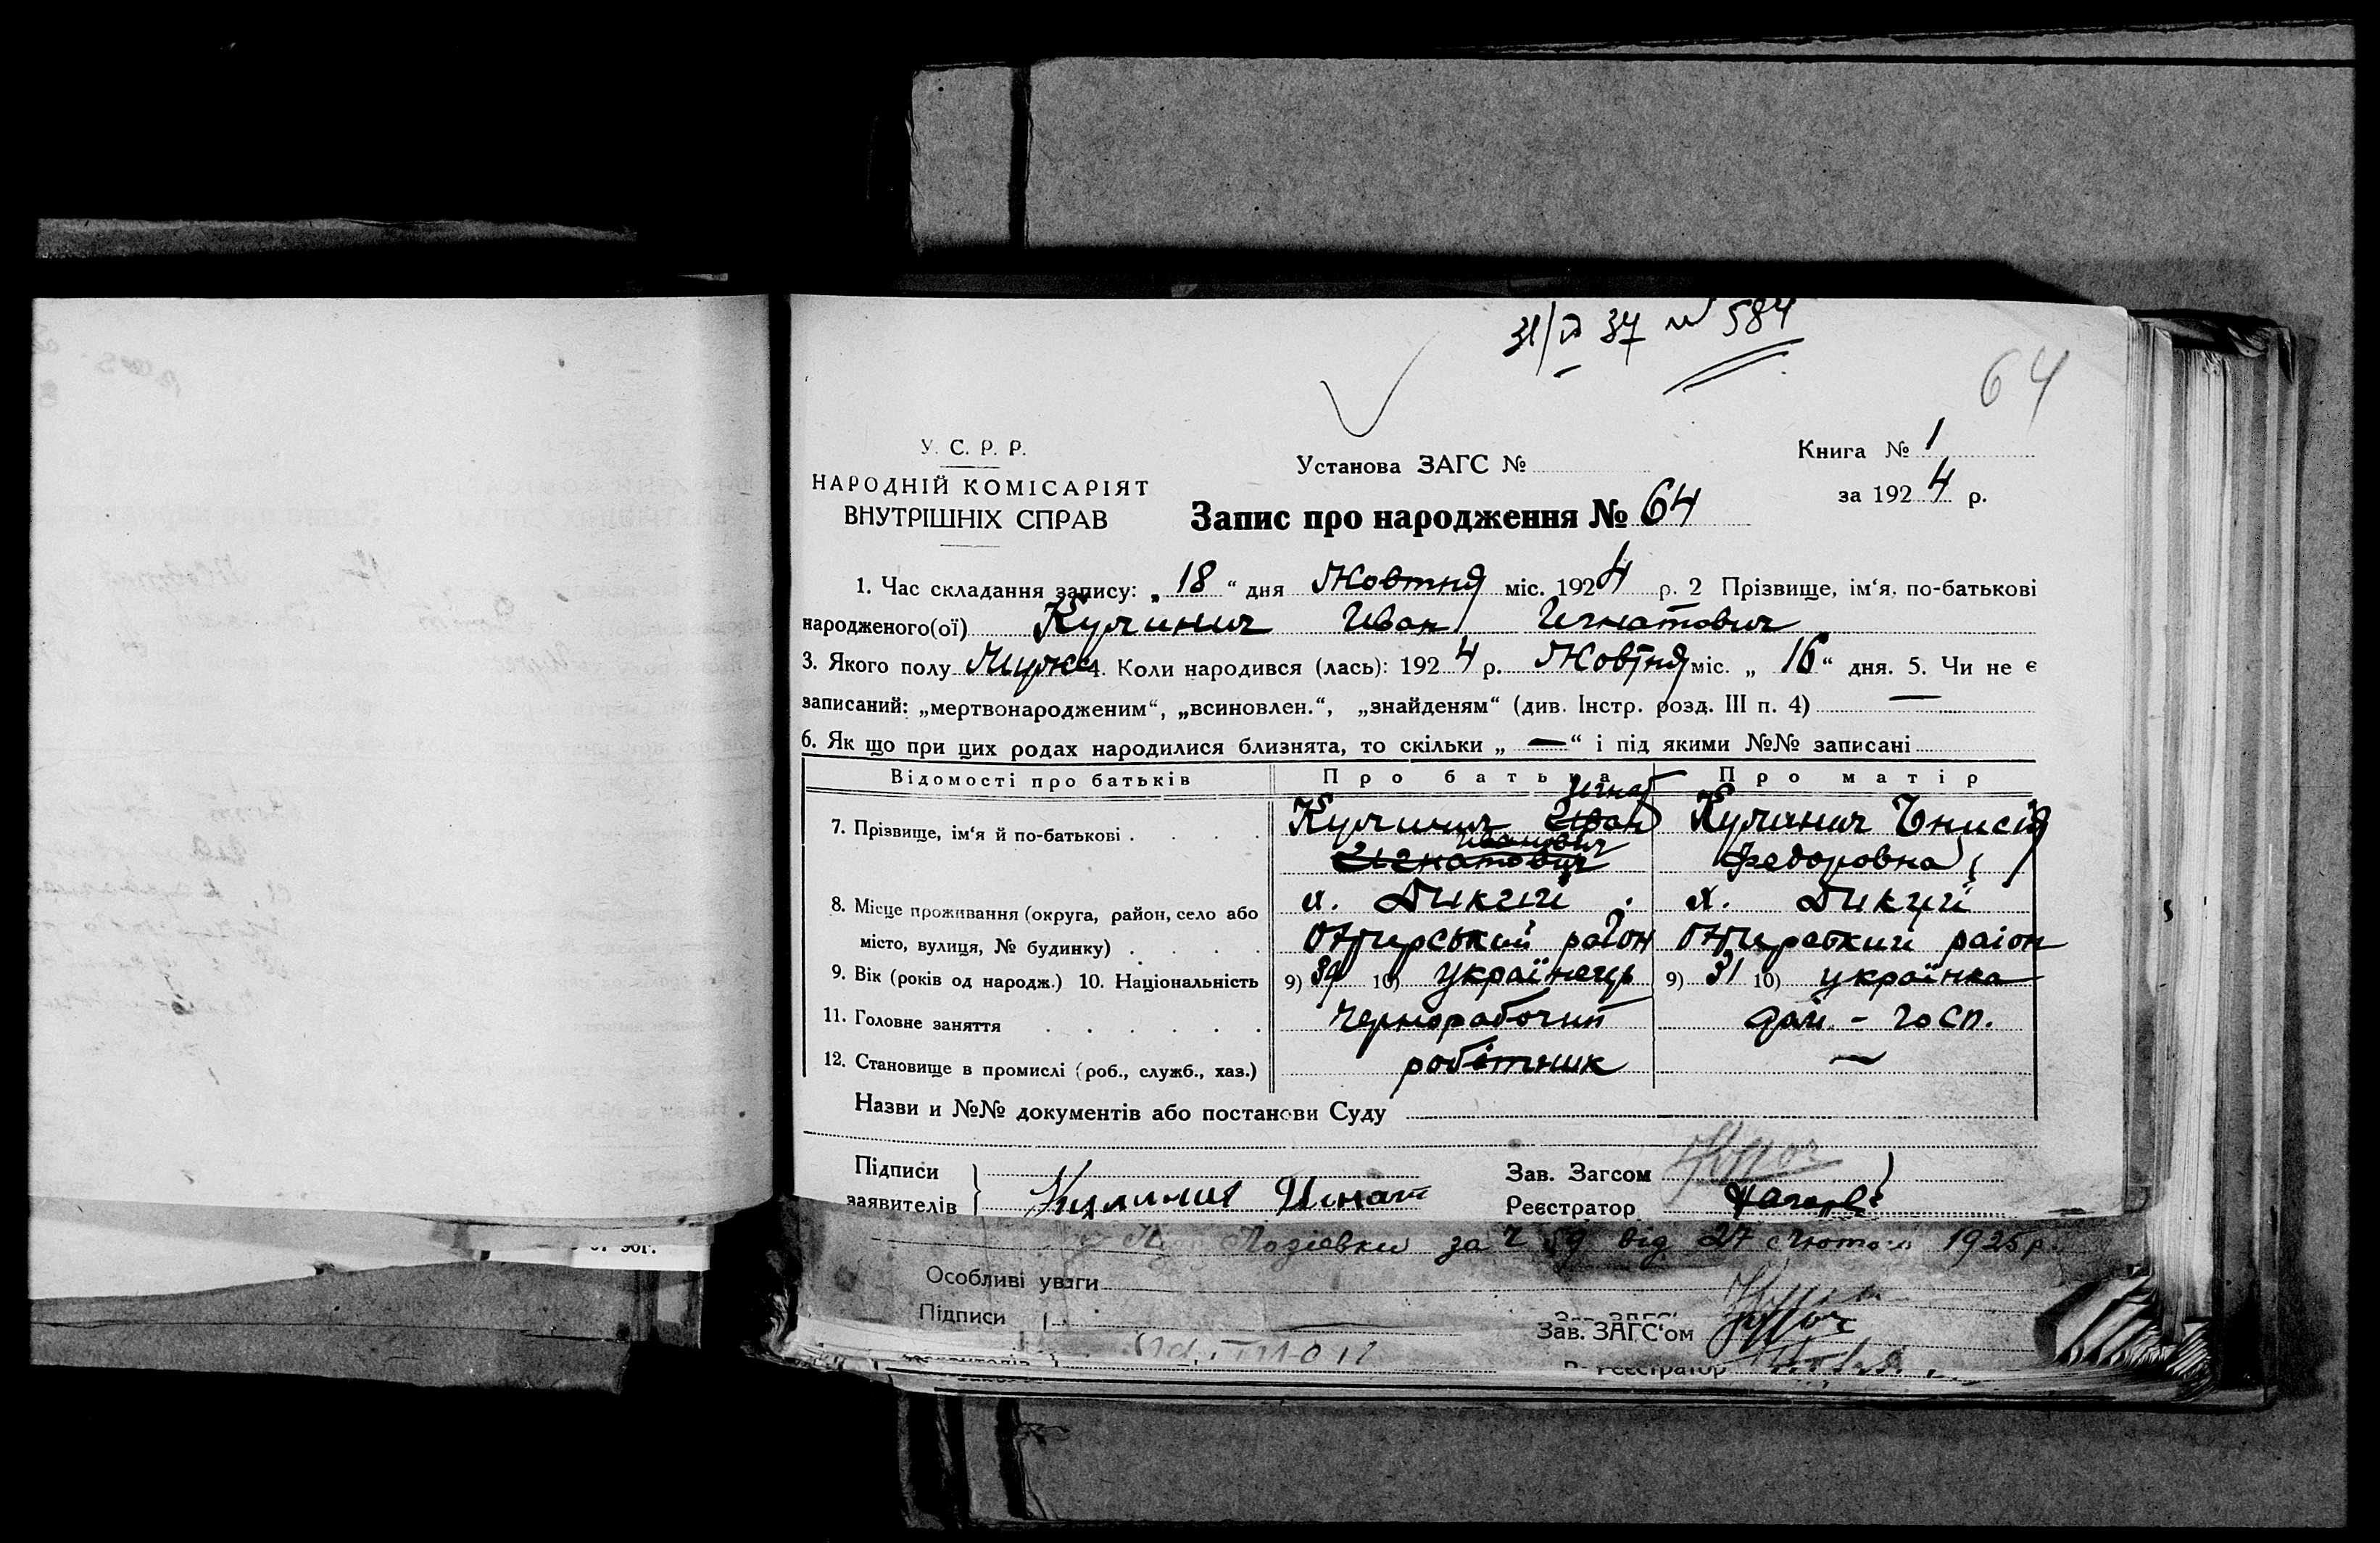 31/VII 37 № 584
64
У. С. Р. Р.
НАРОДНІЙ КОМІСАРІЯТ
ВНУТРІШНІХ СПРАВ
Установа ЗАГС №
Запис про народження № 64
Книга № 1
за 1924 р.
1. Час складання запису: „ 18 “ дня Жовтня міс. 1924 р. 2 Прізвище, ім‘я, по-батькові
народженого(ої) Кулинич Иван Игнатович
3. Якого полу Мужс 4. Коли народився (лась): 1924 р. Жовтня міс. „ 16 “ дня. 5. Чи не є
записаний: „мертвонародженим“, „всиновлен.“, „знайденям“ (див. Інстр. розд. III п. 4) —
6. Як що при цих родах народилися близнята, то скільки „ — “ і під якими №№ записані
Відомості про батьків Про батька Про матір
Игнат
7. Прізвище, ім‘я й по-батькові . . . . . Кулинич Иван Кулинич Онисія
Иванович
Игнатович Федоровна
8. Місце проживання (округа, район, село або х. Дикий х. Дикий
місто, вулиця, № будинку) . . . . район район
9. Вік (років од народж.) 10. Національність 9) 39 10) українець 9) 31 10) українка
11. Головне заняття . . . . . . Чернорабочий дом. - госп.
12. Становище в промислі (роб., служб., хаз.) робітник —
Назви и №№ документів або постанови Суду
Підписи
заявителів Кулинич Игнат
Зав. Загсом
Реєстратор
за Ч 59 від 27 Лютого 1925 р.
Особливі уваги
Підписи
Зав. ЗАГС‘ом
Реєстратор